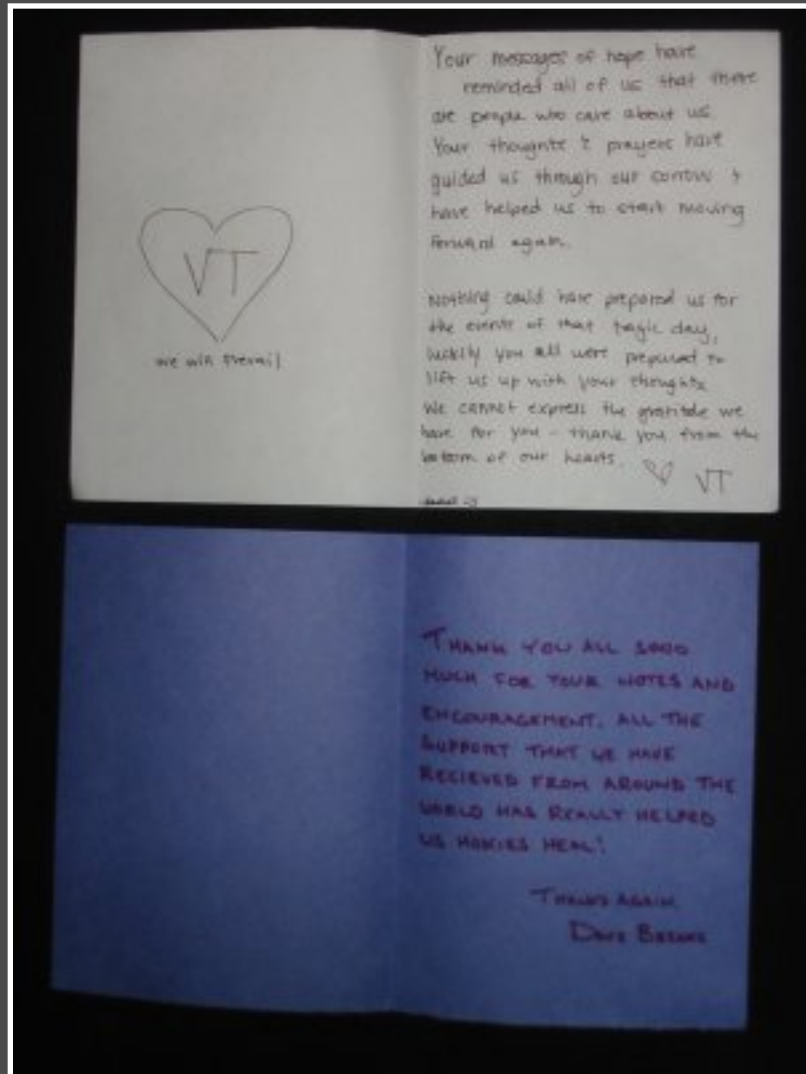 VT
we will prevail
Your messages of hope have
reminded all of us that there
are people who care about us.
Your thoughts & prayers have
guided us through our sorrow &
have helped us to start moving
forward again.
Nothing could have prepared us for
the events of that tragic day,
luckily you all were prepared to
lift us up with your thoughts.
We cannot express the gratitude we
have for you - thank you from the
bottom of our hearts. ♡ VT
THANK YOU ALL SOOO
MUCH FOR YOUR NOTES AND
ENCOURAGEMENT. ALL THE
SUPPORT THAT WE HAVE
RECIEVED FROM AROUND THE
WORLD HAS REALLY HELPED
US HOKIES HEAL!
THANKS AGAIN
DAVE